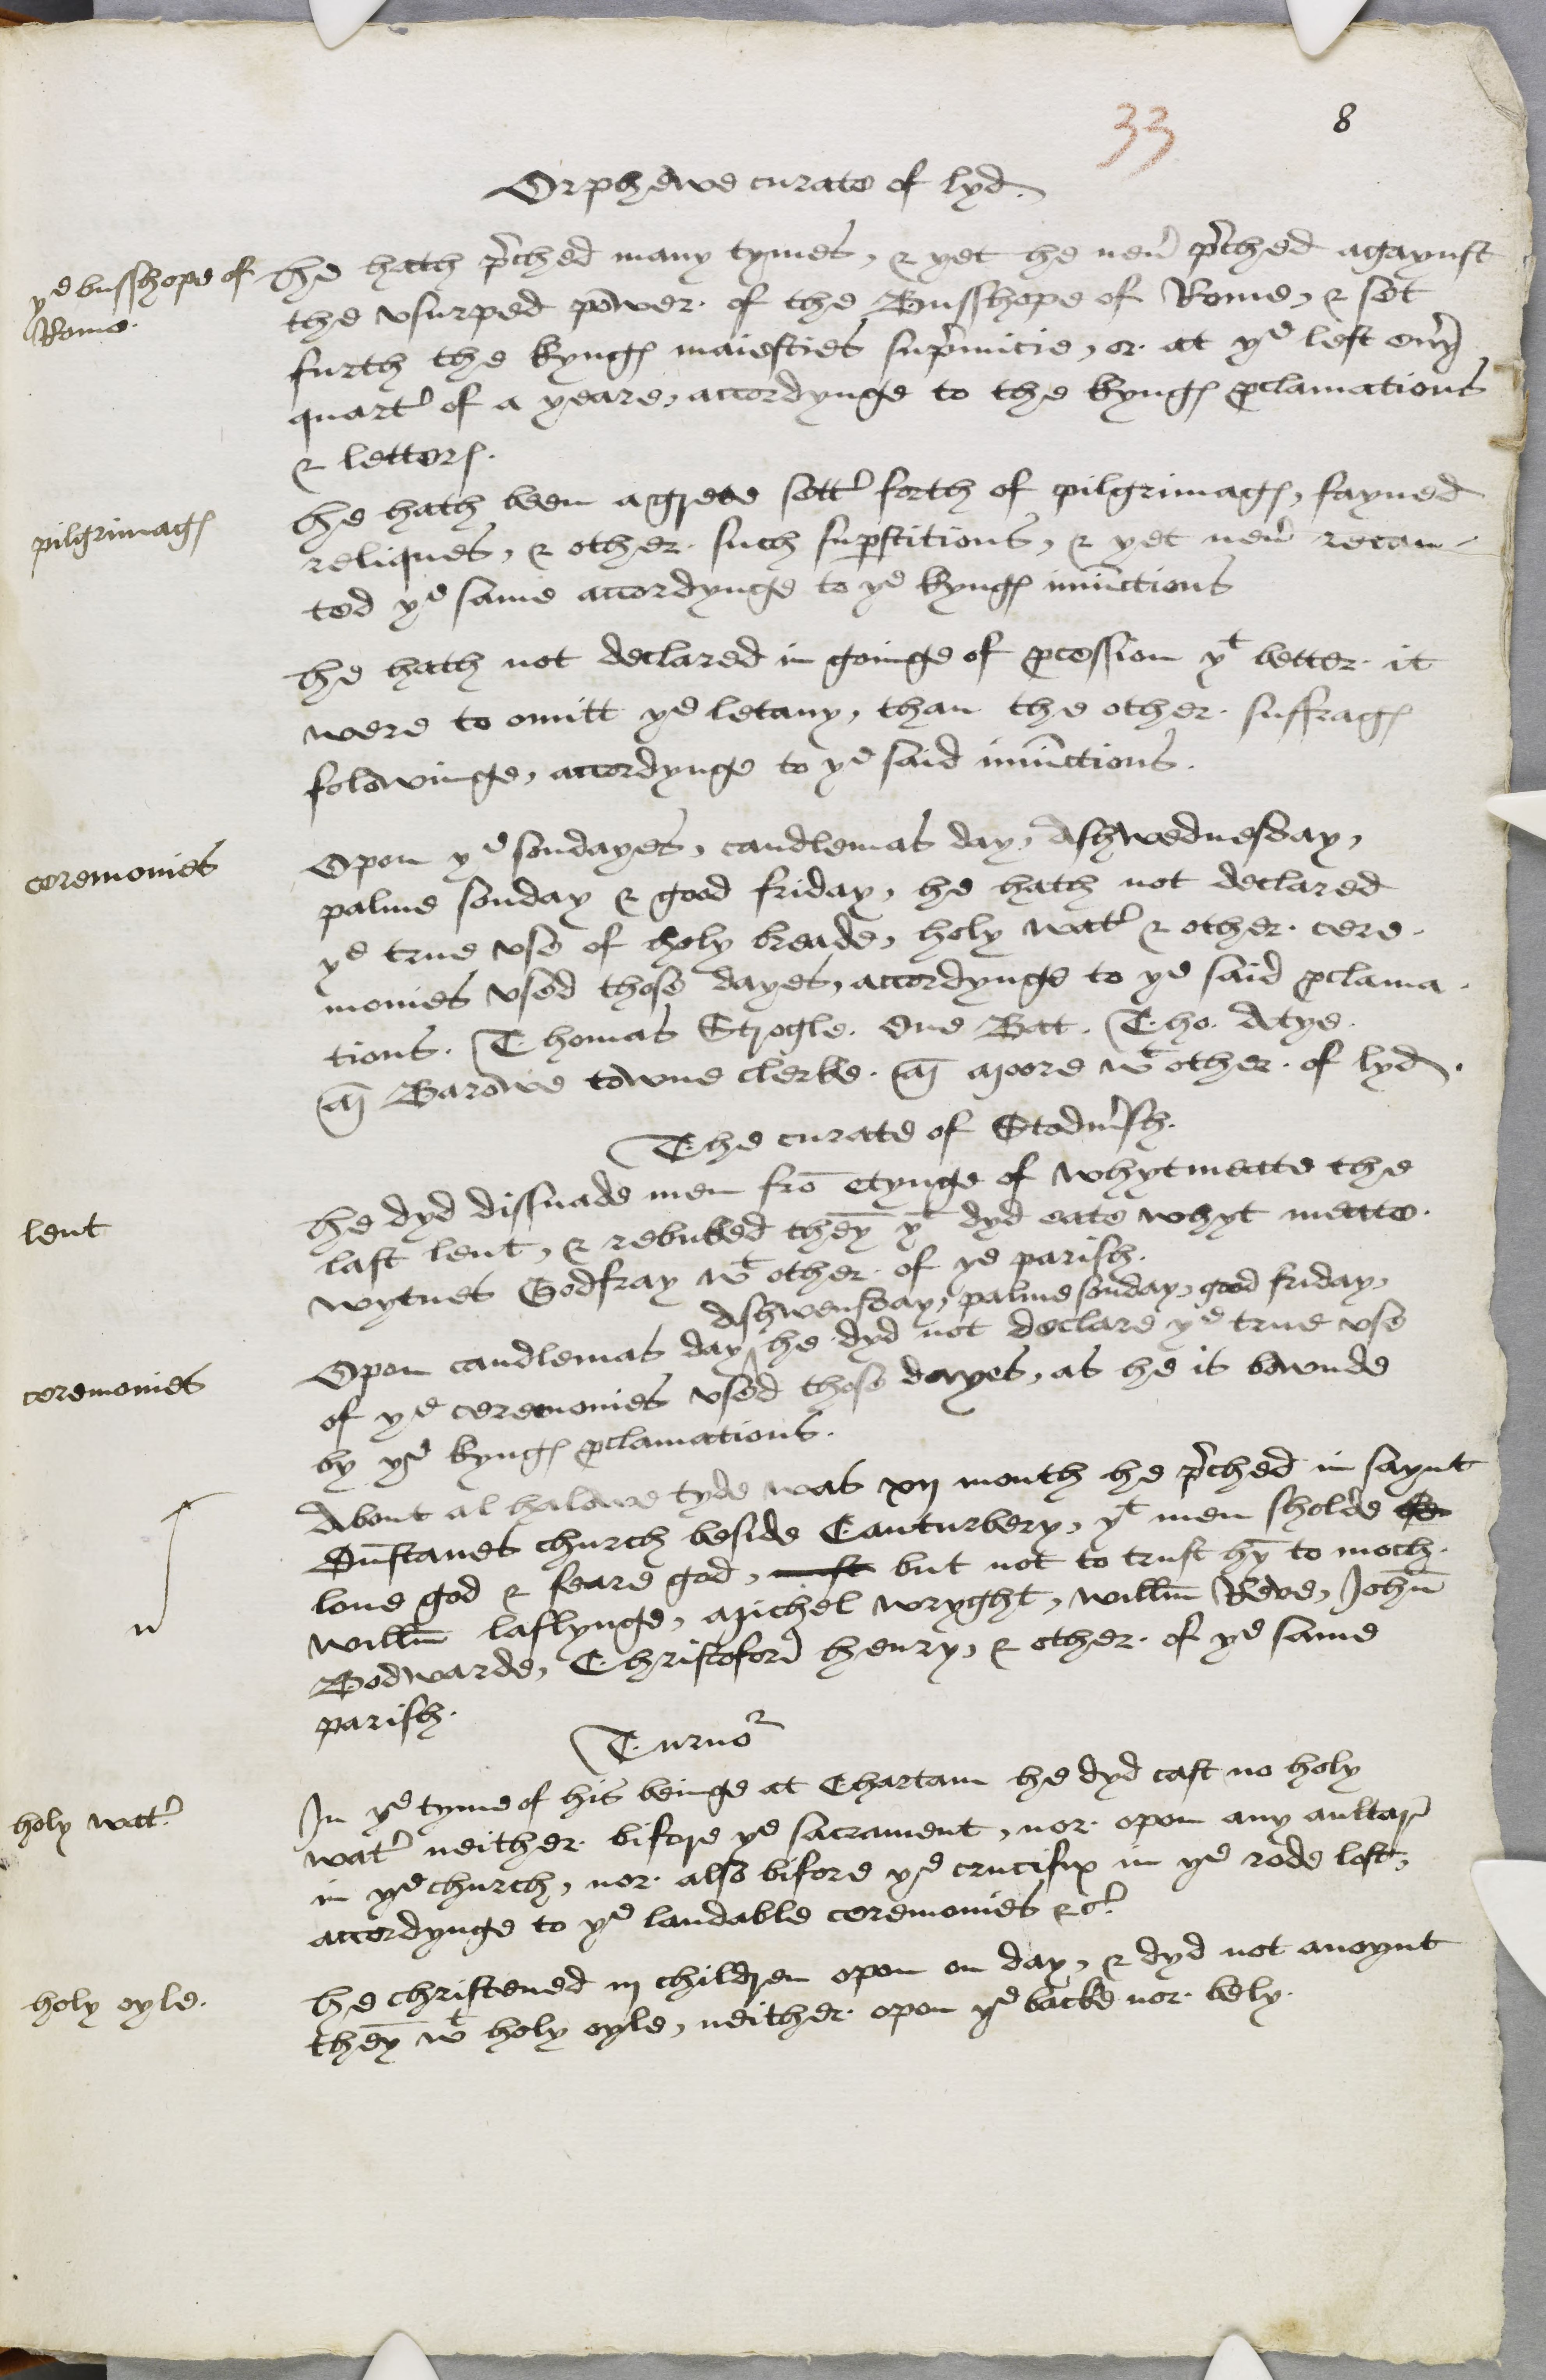 33 8
Orphewe curate of lyd.
yᵉ busshope of
Rome.
he hath p̃ched many tymes, & yet he neũ p̃ched agaynst
the vsurped power of the Busshope of Rome, & set
furth the kyngꝭ maiesties sup̃micie, or at yᵉ lest eũy
quart̉ of a yeare, accordynge to the kyngꝭ ꝓclamations
& letterꝭ.
pilgrimagꝭ
he hath been a grete sett̉ forth of pilgrimagꝭ, fayned
reliques, & other such suꝑstitions, & yet neũ recan-
ted yᵉ same accordynge to yᵉ kyngꝭ iniũctions
he hath not declared in goinge of ꝓcession yᵗ better it
were to omitt yᵉ letany, than the other suffragꝭ
folowinge, accordynge to yᵉ said iniũctions.
ceremonies
Opon yᵉ sondayes, candlemas day, Ashwednesday,
palme sonday & good friday, he hath not declared
yᵉ true vse of holy breade, holy wat̉ & other cere-
monies vsed those dayes, accordynge to yᵉ said ꝓclama-
tions. Thomas Strogle. One Bat. Tho. Atye.
Barowe towne clerke. Moore wᵗ other of lyd.
The curate of Stodm̃sh.
lent
he dyd dissuade men frõ etynge of whytmeate the
last lent, & rebuked thẽ yᵗ dyd eate whyt meate.
wytnes Godfray wᵗ other of yᵉ parish.
Ashwensday, palme sonday, good friday,
ceremonies
Opon candlemas day ^ he dyd not declare yᵉ true vse
of yᵉ ceremonies vsed those dayes, as he is bownde
by yᵉ kyngꝭ ꝓclamations.
About al halowe tyde was xij month he p̃ched in saynt
Dũstanes church beside Canturbery, yᵗ men sholde
loue god & feare god, but not to trust hỹ to moch.
willm̃ laslynge, Michel wryght, willm̃ Reve, Johñ
Bodwarde, Christofer henry, & other of yᵉ same
parish.
Turnoʳ
holy wat̉.
In yᵉ tyme of his beinge at Chartam he dyd cast no holy
wat̉ neither bifore yᵉ sacrament, nor opon any aultare
in yᵉ church, nor also bifore yᵉ crucifix in yᵉ rode loft,
accordynge to yᵉ laudable ceremonies &c̉.
holy oyle.
he christened iij children opon on day, & dyd not anoynt
thẽ wᵗ holy oyle, neither opon yᵉ backe nor bely.